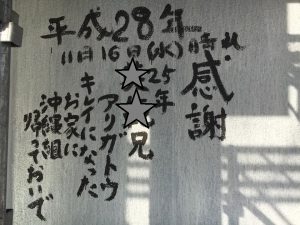 平成28年
11月16日(水)晴れ
感謝
☆☆兄
25年
アリガトウ
キレイになった
お家に
沖縄組
帰っておいで